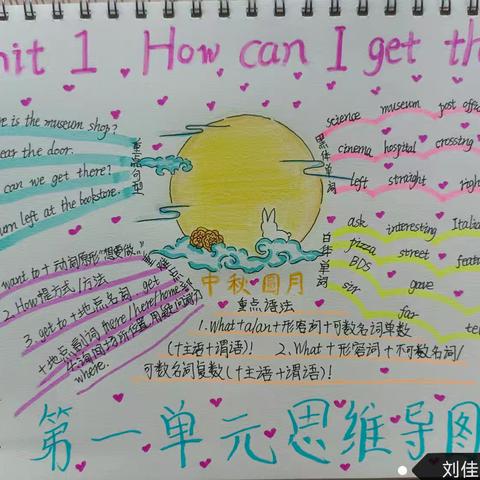 nit 1 . How can I get the
re is the museum shop?
ear the door.
can we get there?
urn left at the bookstore.
重点句型
want to + 动词原形"想要做…"
2. How提方式/方法
3. get to + 地点名词, get
+地点副词 there/here/home
where.
中秋圆月
重点语法
1. What+a/an+形容词+可数名词单数
(+主语+谓语)! 2. What + 形容词 + 不可数名词/
可数名词复数(+主语+谓语)!
黑体单词
science museum post office
cinema hospital crossing
left straight righ
白体单词
ask interesting Italia
pizza street
BDS featu
sir gave
far
tel
第一单元思维导图
刘佳